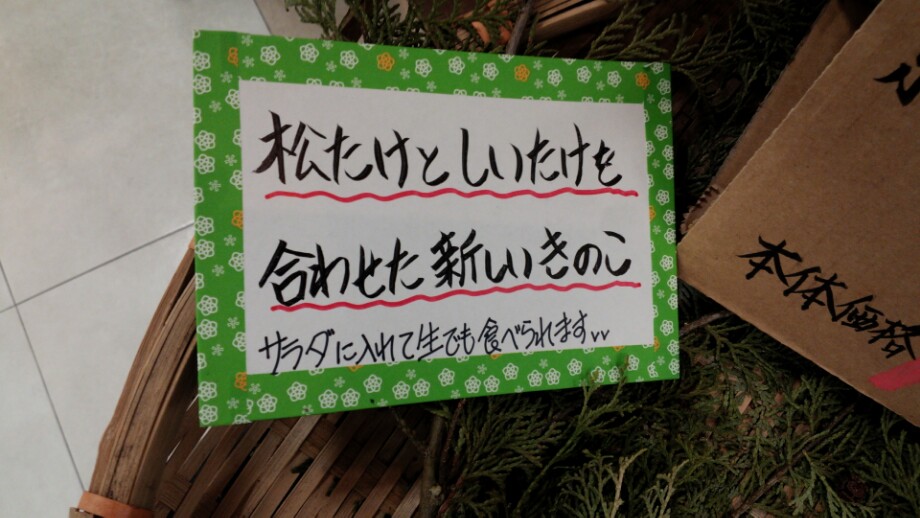 松たけとしいたけを
合わせた新しいきのこ
サラダに入れて生でも食べられますvv
本体価格